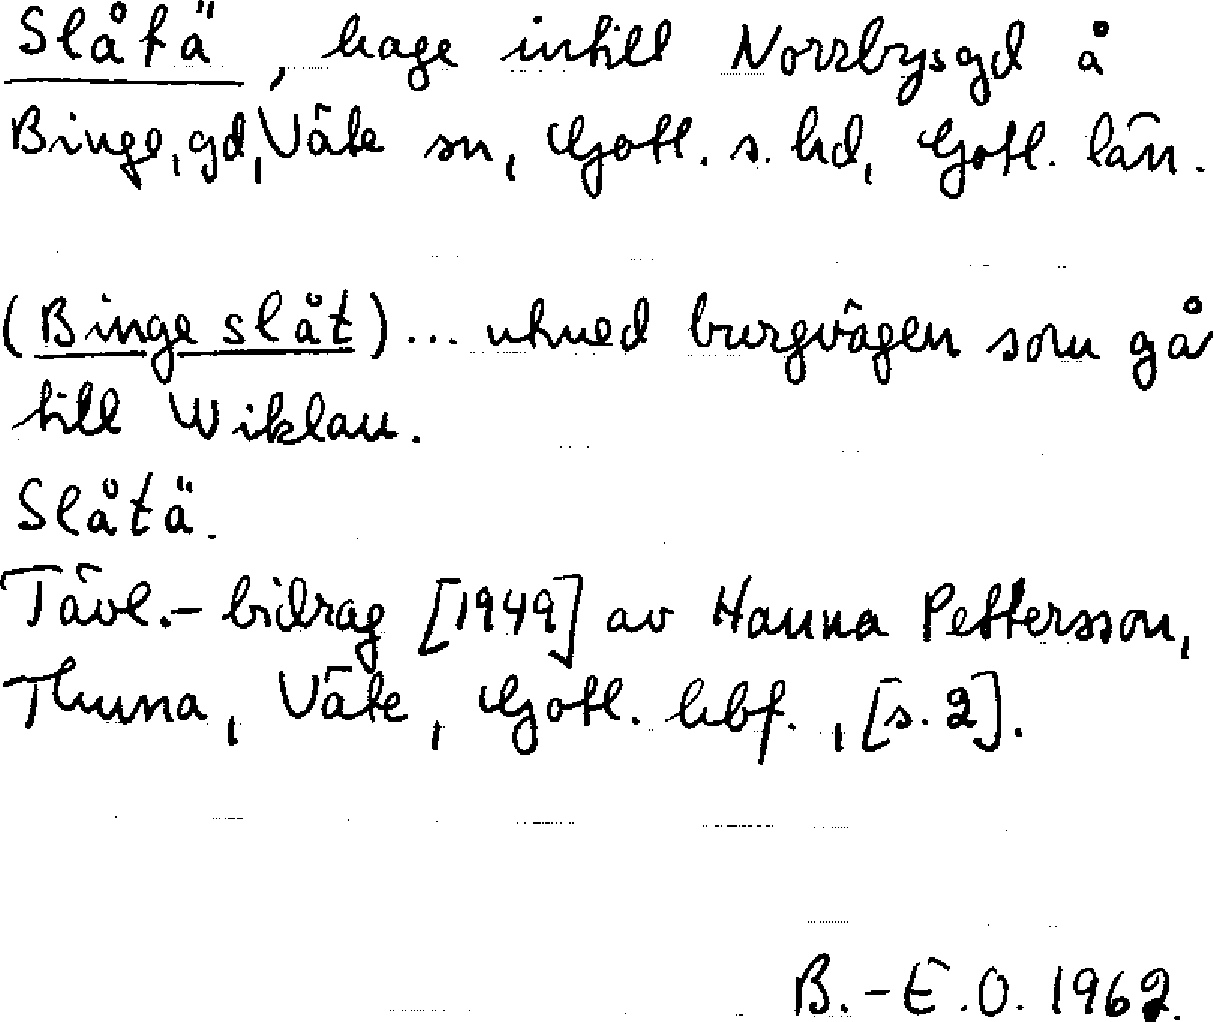 Slåtä, hage intill Norrbysgd å
Binge, gd, Väte sn, Gotl. s. hd, Gotl. län.
(Binge slåt)... utmed burgvägen som gå
till Wiklau.
Slåtä.
Tävl.-bidrag [1949] av Hanna Pettersson,
Thuna, Väte, Gotl. hbf., [s. 2].
B.-E.O. 1962.